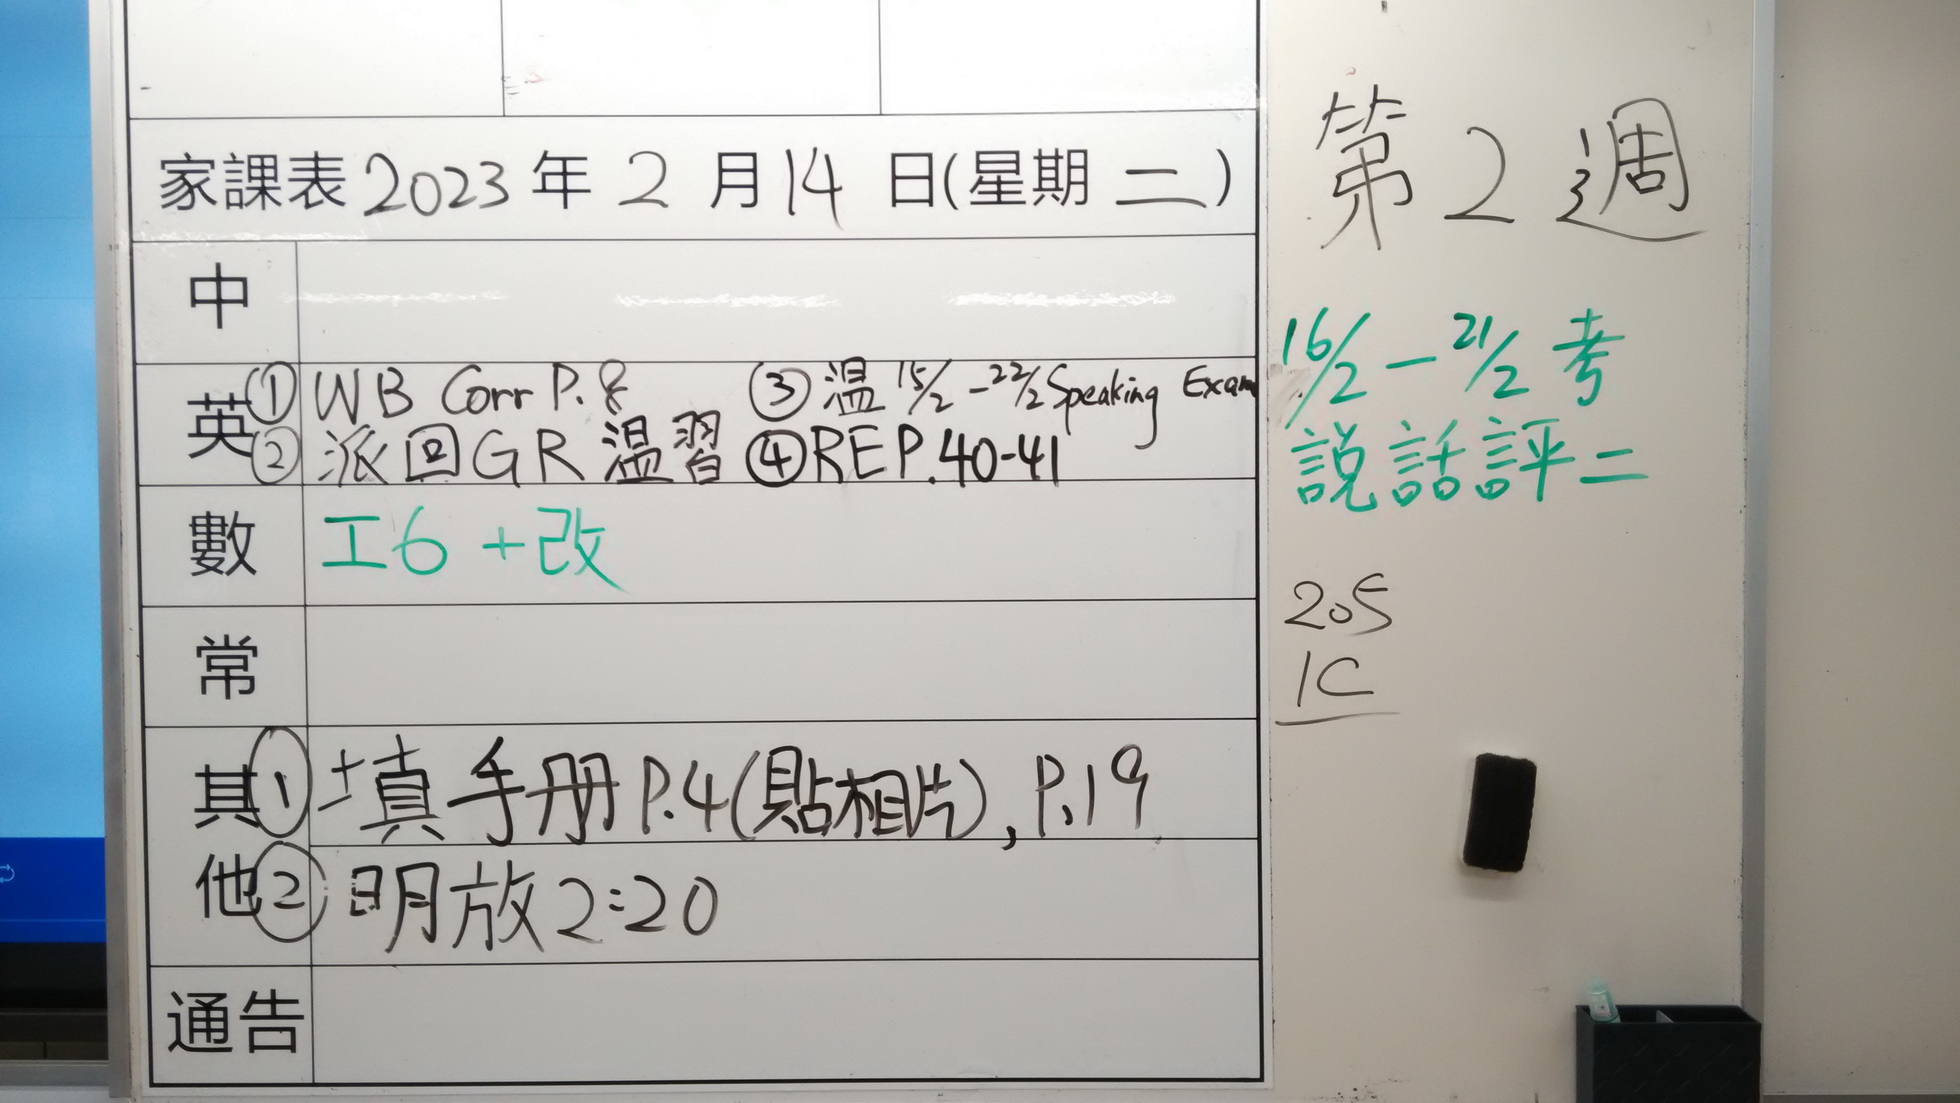 家課表 2023 年 2 月 14 日(星期 二)
中
英
① WB Corr P.8 ③ 温 15/2 - 22/2 Speaking Exam
② 派回GR 温習 ④ RE P.40-41
數 工6 + 改
常
其他
① 填手册 P.4(貼相片), P.19
② 明放 2:20
通告
第 2 週
16/2 - 21/2 考
説話評二
205
1C